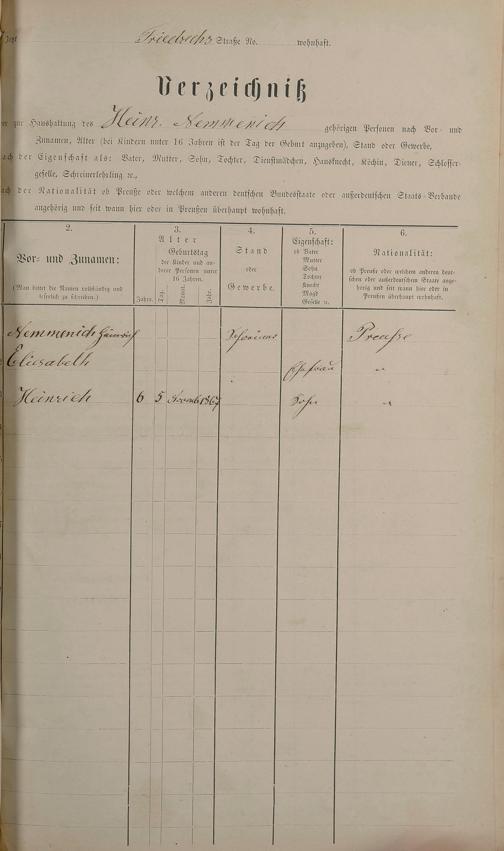 Friedrichs Straße No. wohnhaft.
Verzeichniß
zur Haushaltung des Heinr. Nemmenich gehörigen Personen nach Vor- und
Zunamen, Alter (bei Kindern unter 16 Jahren ist der Tag der Geburt anzugeben), Stand oder Gewerbe,
nach der Eigenschaft als: Vater, Mutter, Sohn, Tochter, Dienstmädchen, Hausknecht, Köchin, Diener, Schlosser-
geselle, Schreinerlehrling ꝛc.,
nach der Nationalität ob Preuße oder welchem anderen deutschen Bundesstaate oder außerdeutschen Staats-Verbande
angehörig und seit wann hier oder in Preußen überhaupt wohnhaft.
2. 3. 4. 5. 6.
Vor- und Zunamen:
(Man bittet die Namen vollständig und
leserlich zu schreiben.)
Alter
Geburtstag
der Kinder und an-
derer Personen unter
16 Jahren.
Jahre. Tag. Monat. Jahr.
Stand
oder
Gewerbe.
Eigenschaft:
ob Vater
Mutter
Sohn
Tochter
Knecht
Magd
Geselle u.
Nationalität:
ob Preuße oder welchem anderen deut-
schen oder außerdeutschen Staate ange-
hörig und seit wann hier oder in
Preußen überhaupt wohnhaft.
Nemmenich Heinrich Schreiner Preuße
Elisabeth Ehefrau "
Heinrich 6 5 Novemb 1867 Sohn "